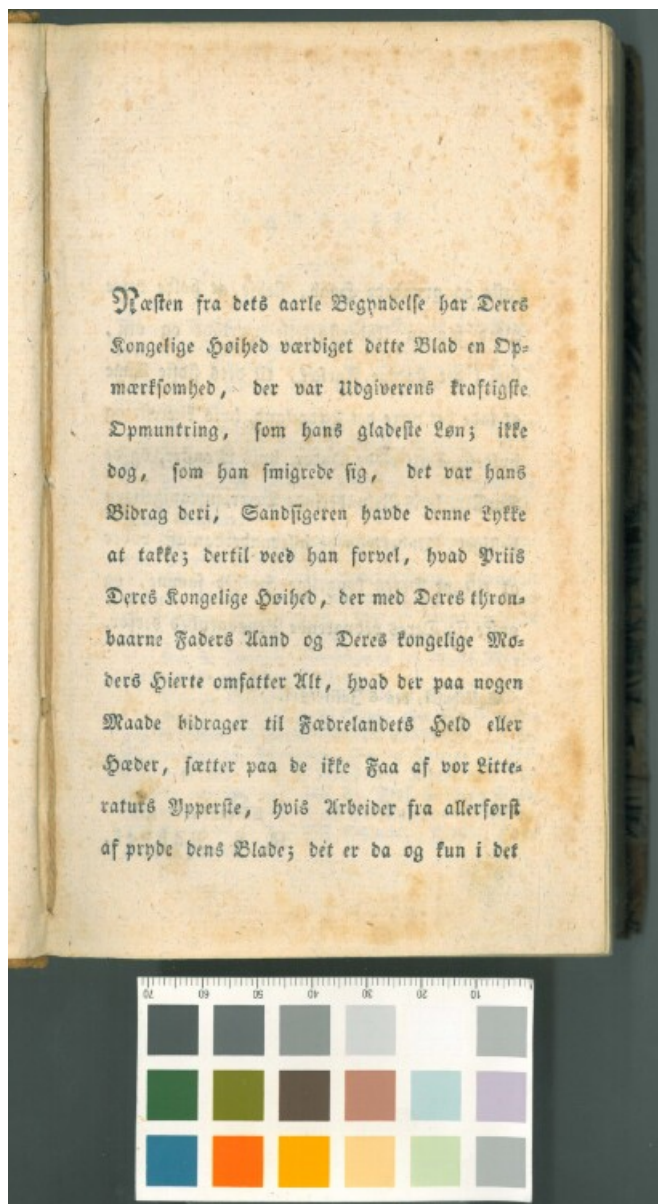 Næsten fra dets aarle Begyndelse har Deres
Kongelige Høihed værdiget dette Blad en Op=
mærksomhed, der var Udgiverens kraftigste
Opmuntring, som hans gladeste Løn; ikke
dog, som han smigrede sig, det var hans
Bidrag deri, Sandsigeren havde denne Lykke
at takke; dertil veed han forvel, hvad Priis
Deres Kongelige Høihed, der med Deres thron=
baarne Faders Aand og Deres kongelige Mo=
ders Hierte omfatter Alt, hvad der paa nogen
Maade bidrager til Fædrelandets Held eller
Hæder, sætter paa de ikke Faa af vor Litte=
raturs Ypperste, hvis Arbeider fra allerførst
af pryde dens Blade; det er da og kun i det
70 60 50 40 30 20 10